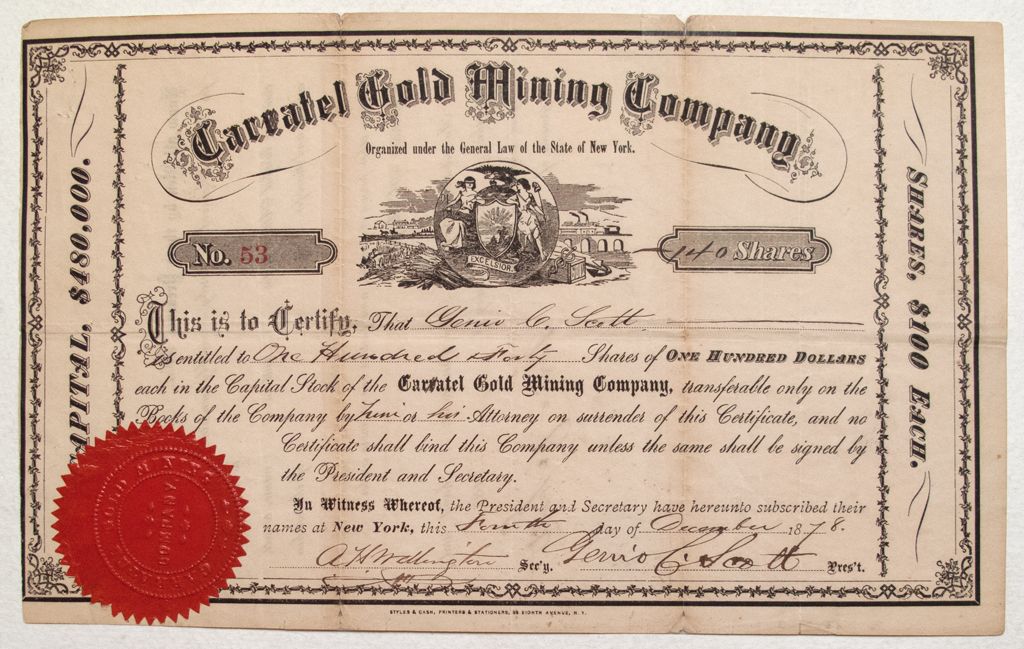 Carratel Gold Mining Company
Organized under the General Law of the State of New York.
EXCELSIOR
No. 53
140 Shares
CAPITAL, $480,000.
SHARES, $100 EACH.
This is to Certify, That Genio C. Scott
is entitled to One Hundred & Forty Shares of ONE HUNDRED DOLLARS
each in the Capital Stock of the Carratel Gold Mining Company, transferable only on the
Books of the Company by him or his Attorney on surrender of this Certificate, and no
Certificate shall bind this Company unless the same shall be signed by
the President and Secretary.
In Witness Whereof, the President and Secretary have hereunto subscribed their
names at New York, this Fourth day of December 1878.
A H Wellington Sec'y. Genio C. Scott Pres't.
COMPANY
STYLES & CASH, PRINTERS & STATIONERS, EIGHTH AVENUE, N. Y.